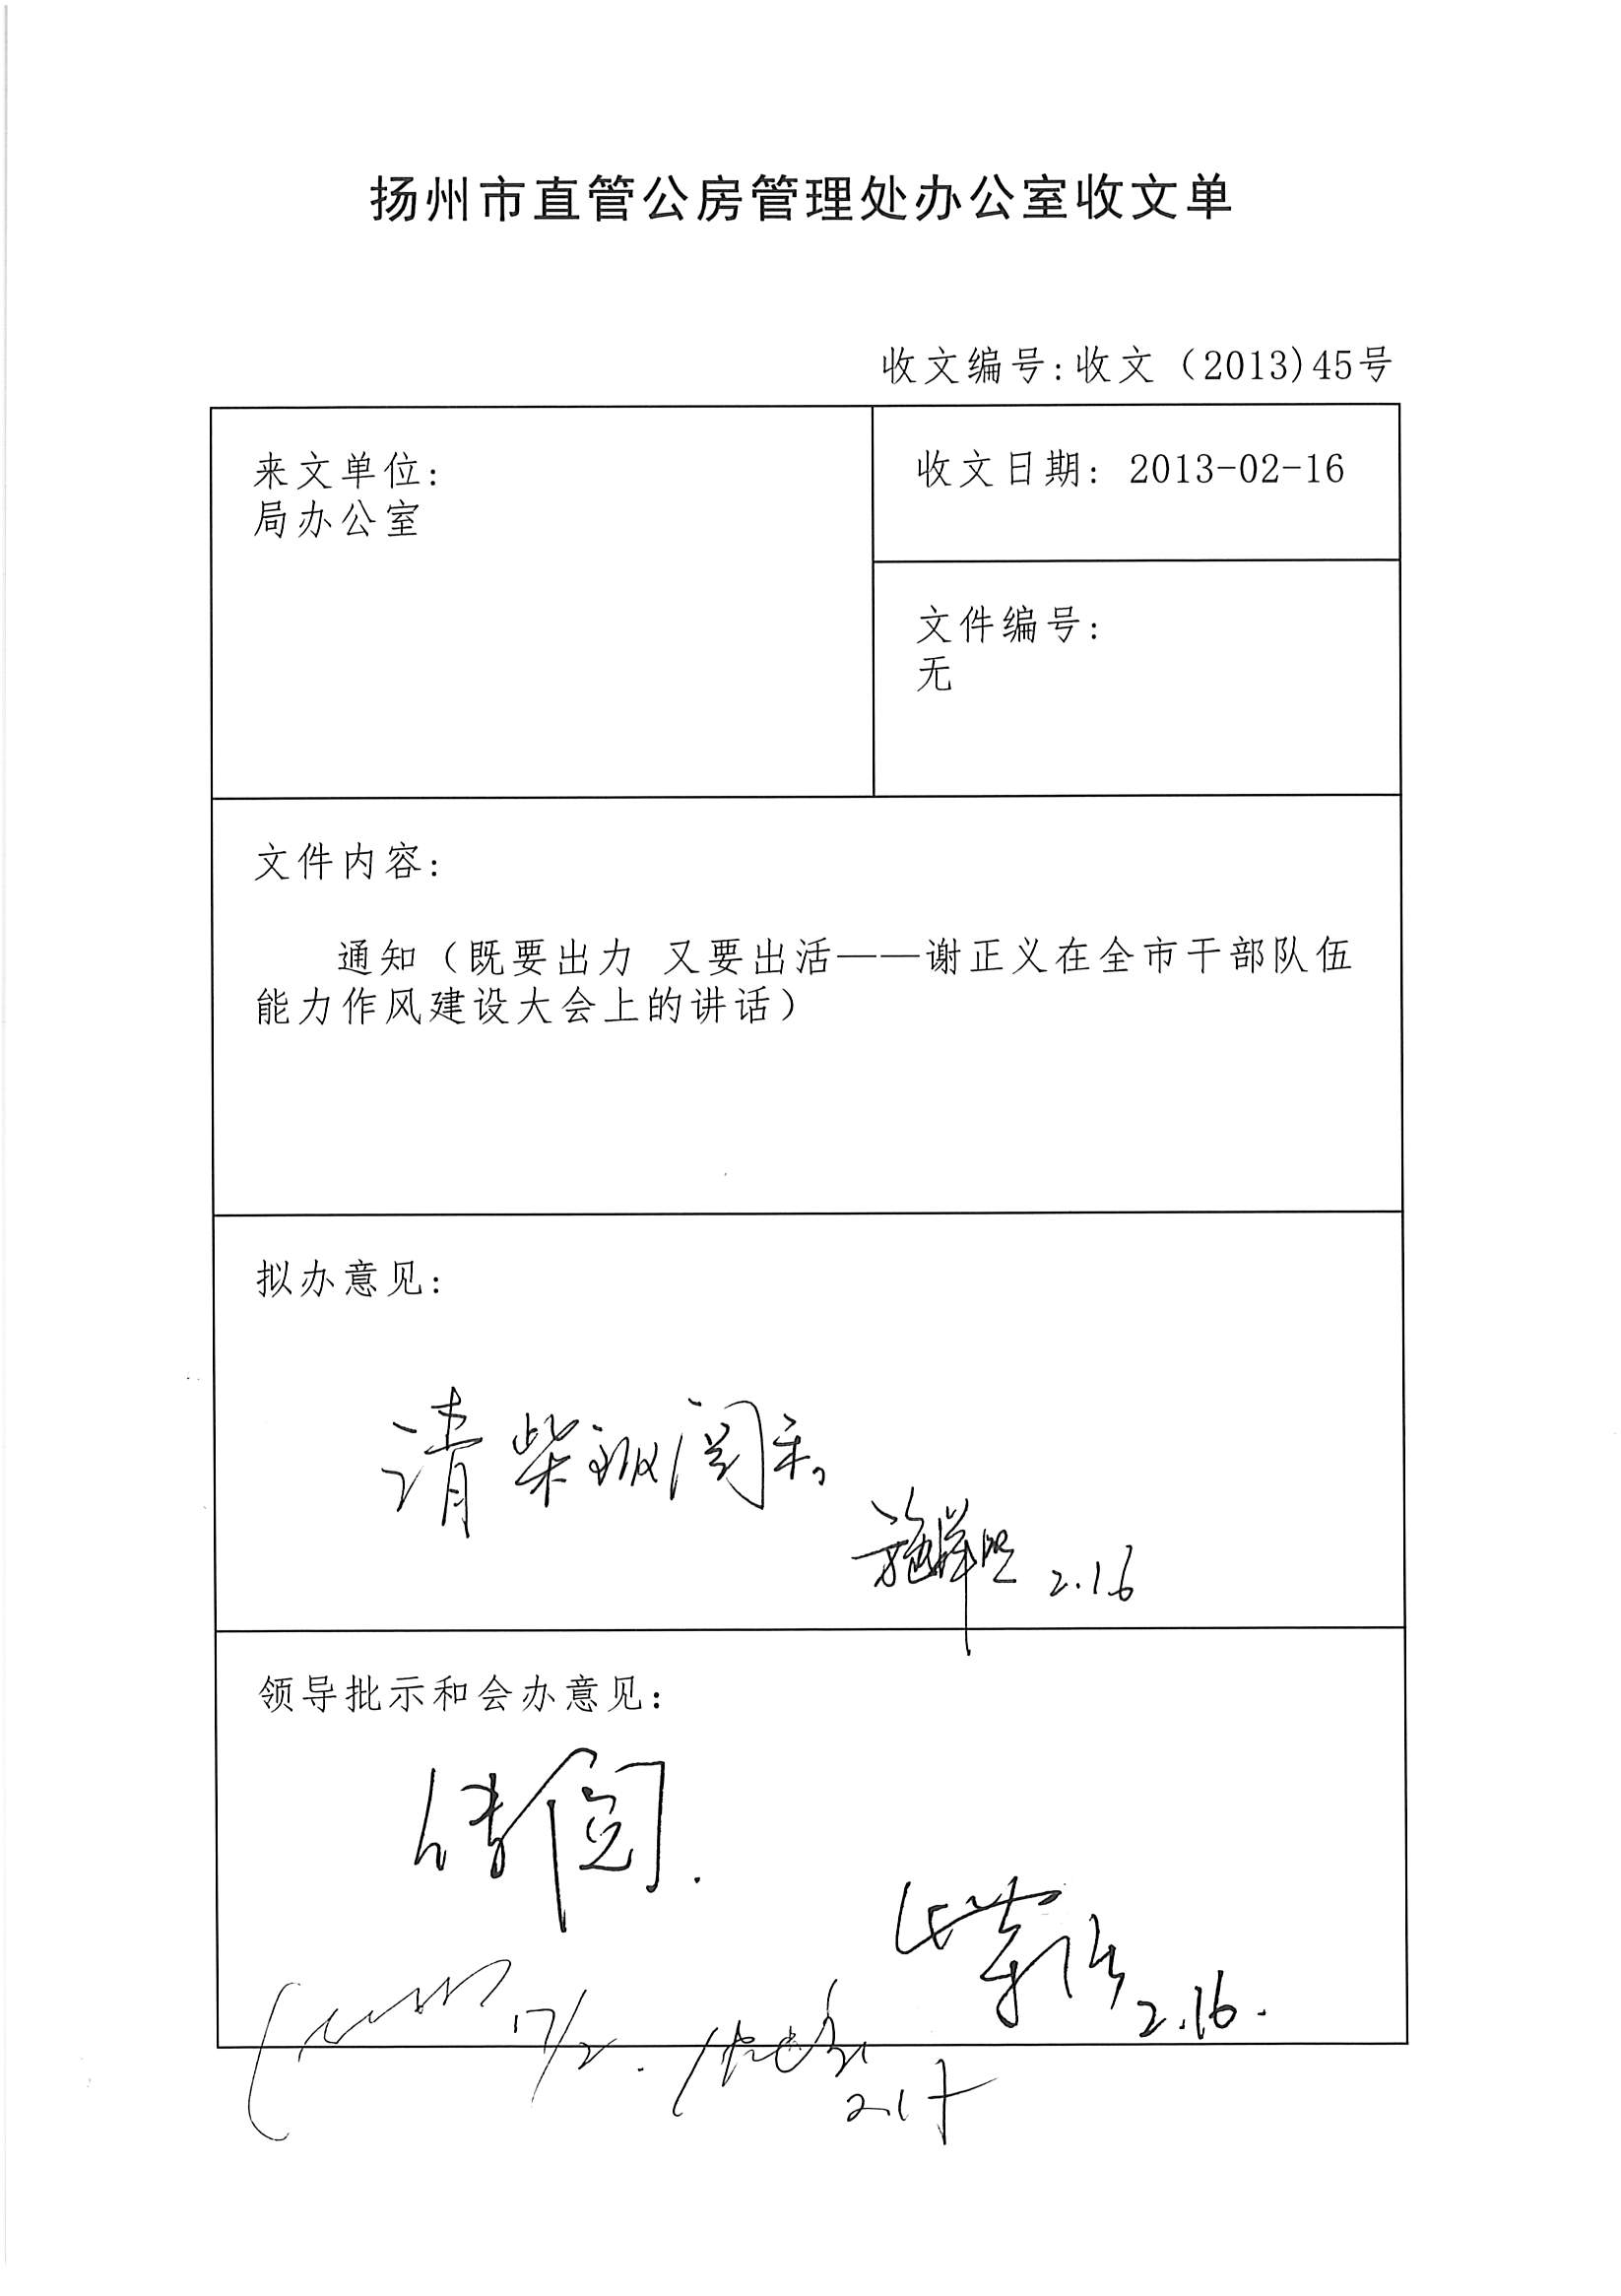 扬州市直管公房管理处办公室收文单
收文编号:收文（2013)45号
来文单位:
局办公室
收文日期: 2013-02-16
文件编号:
无
文件内容:
通知（既要出力 又要出活——谢正义在全市干部队伍
能力作风建设大会上的讲话）
拟办意见:
请柴 阅示。
2.16
领导批示和会办意见:
传阅.
2.16.
17/2.
2.17